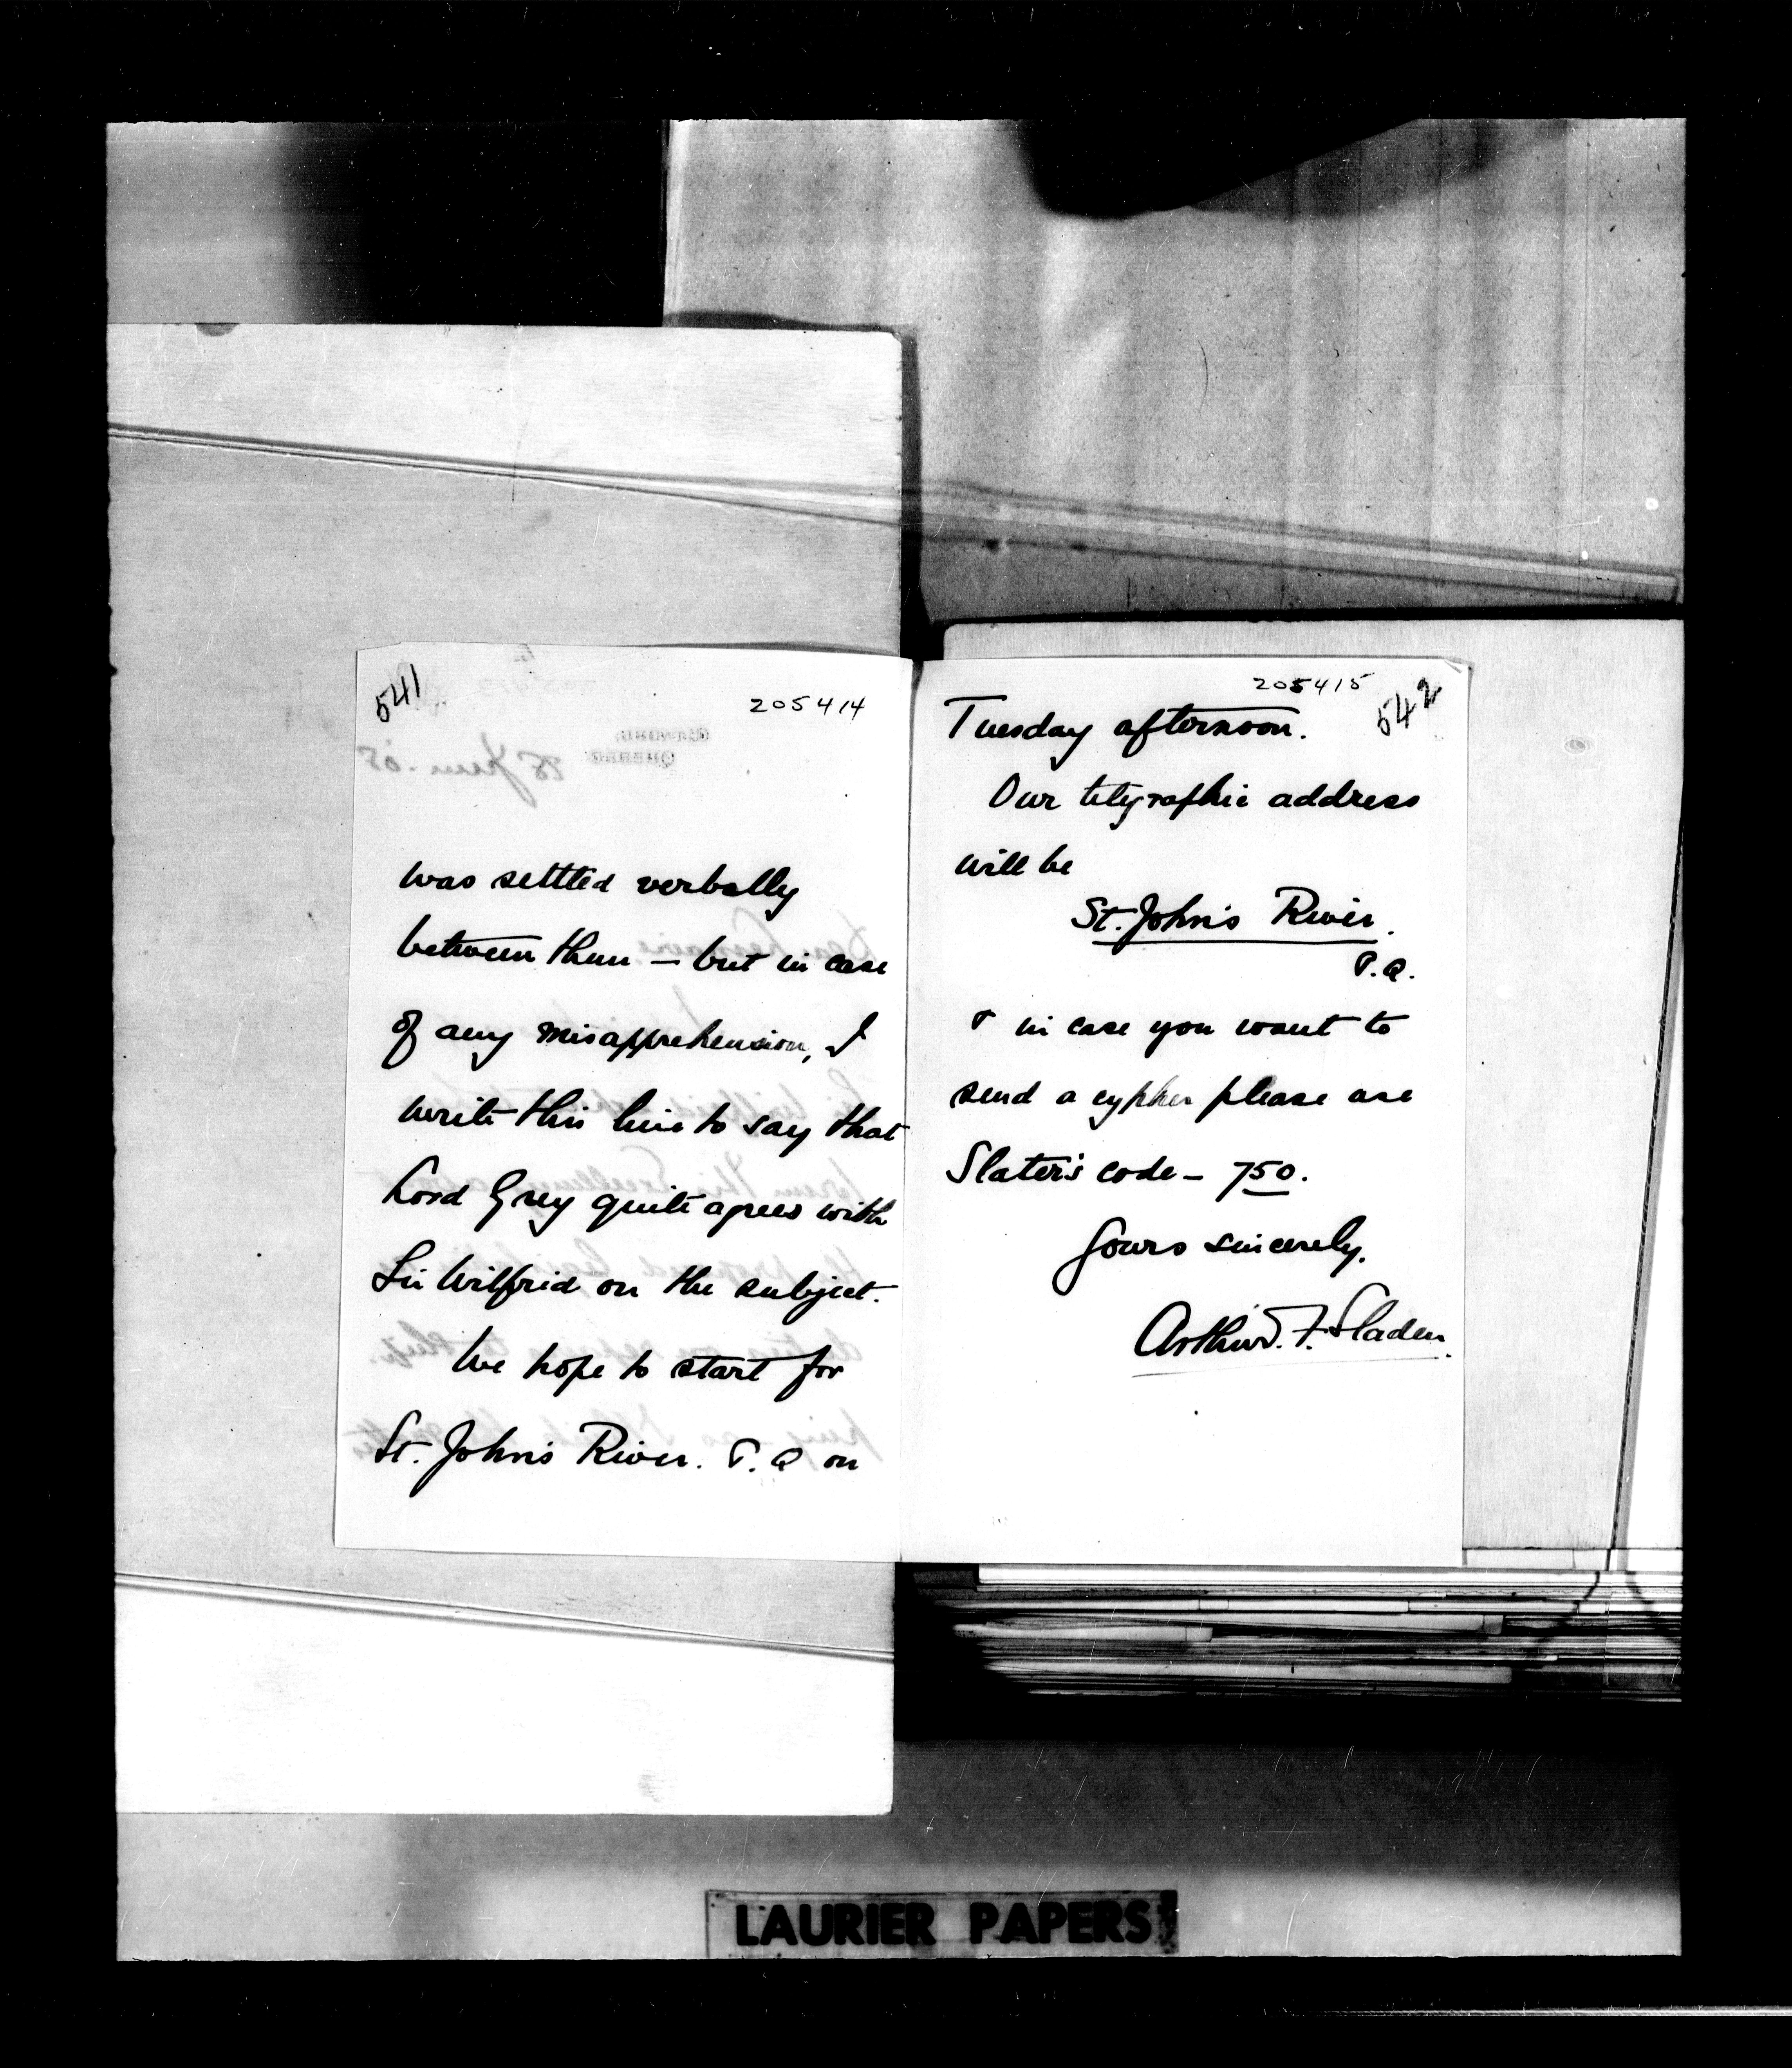 541
205414
was settled verbally
between them – but in case
of any misapprehension, I
write this line to say that
Lord Grey quite agrees with
Sir Wilfrid on the subject.
We hope to start for
St. John's River. P. Q on
205415
542
Tuesday afternoon.
Our telegraphic address
will be
St. John's River.
P.Q.
& in case you want to
send a cypher please use
Slater's code – 750.
Yours sincerely,
Arthur. F. Sladen.
LAURIER PAPERS